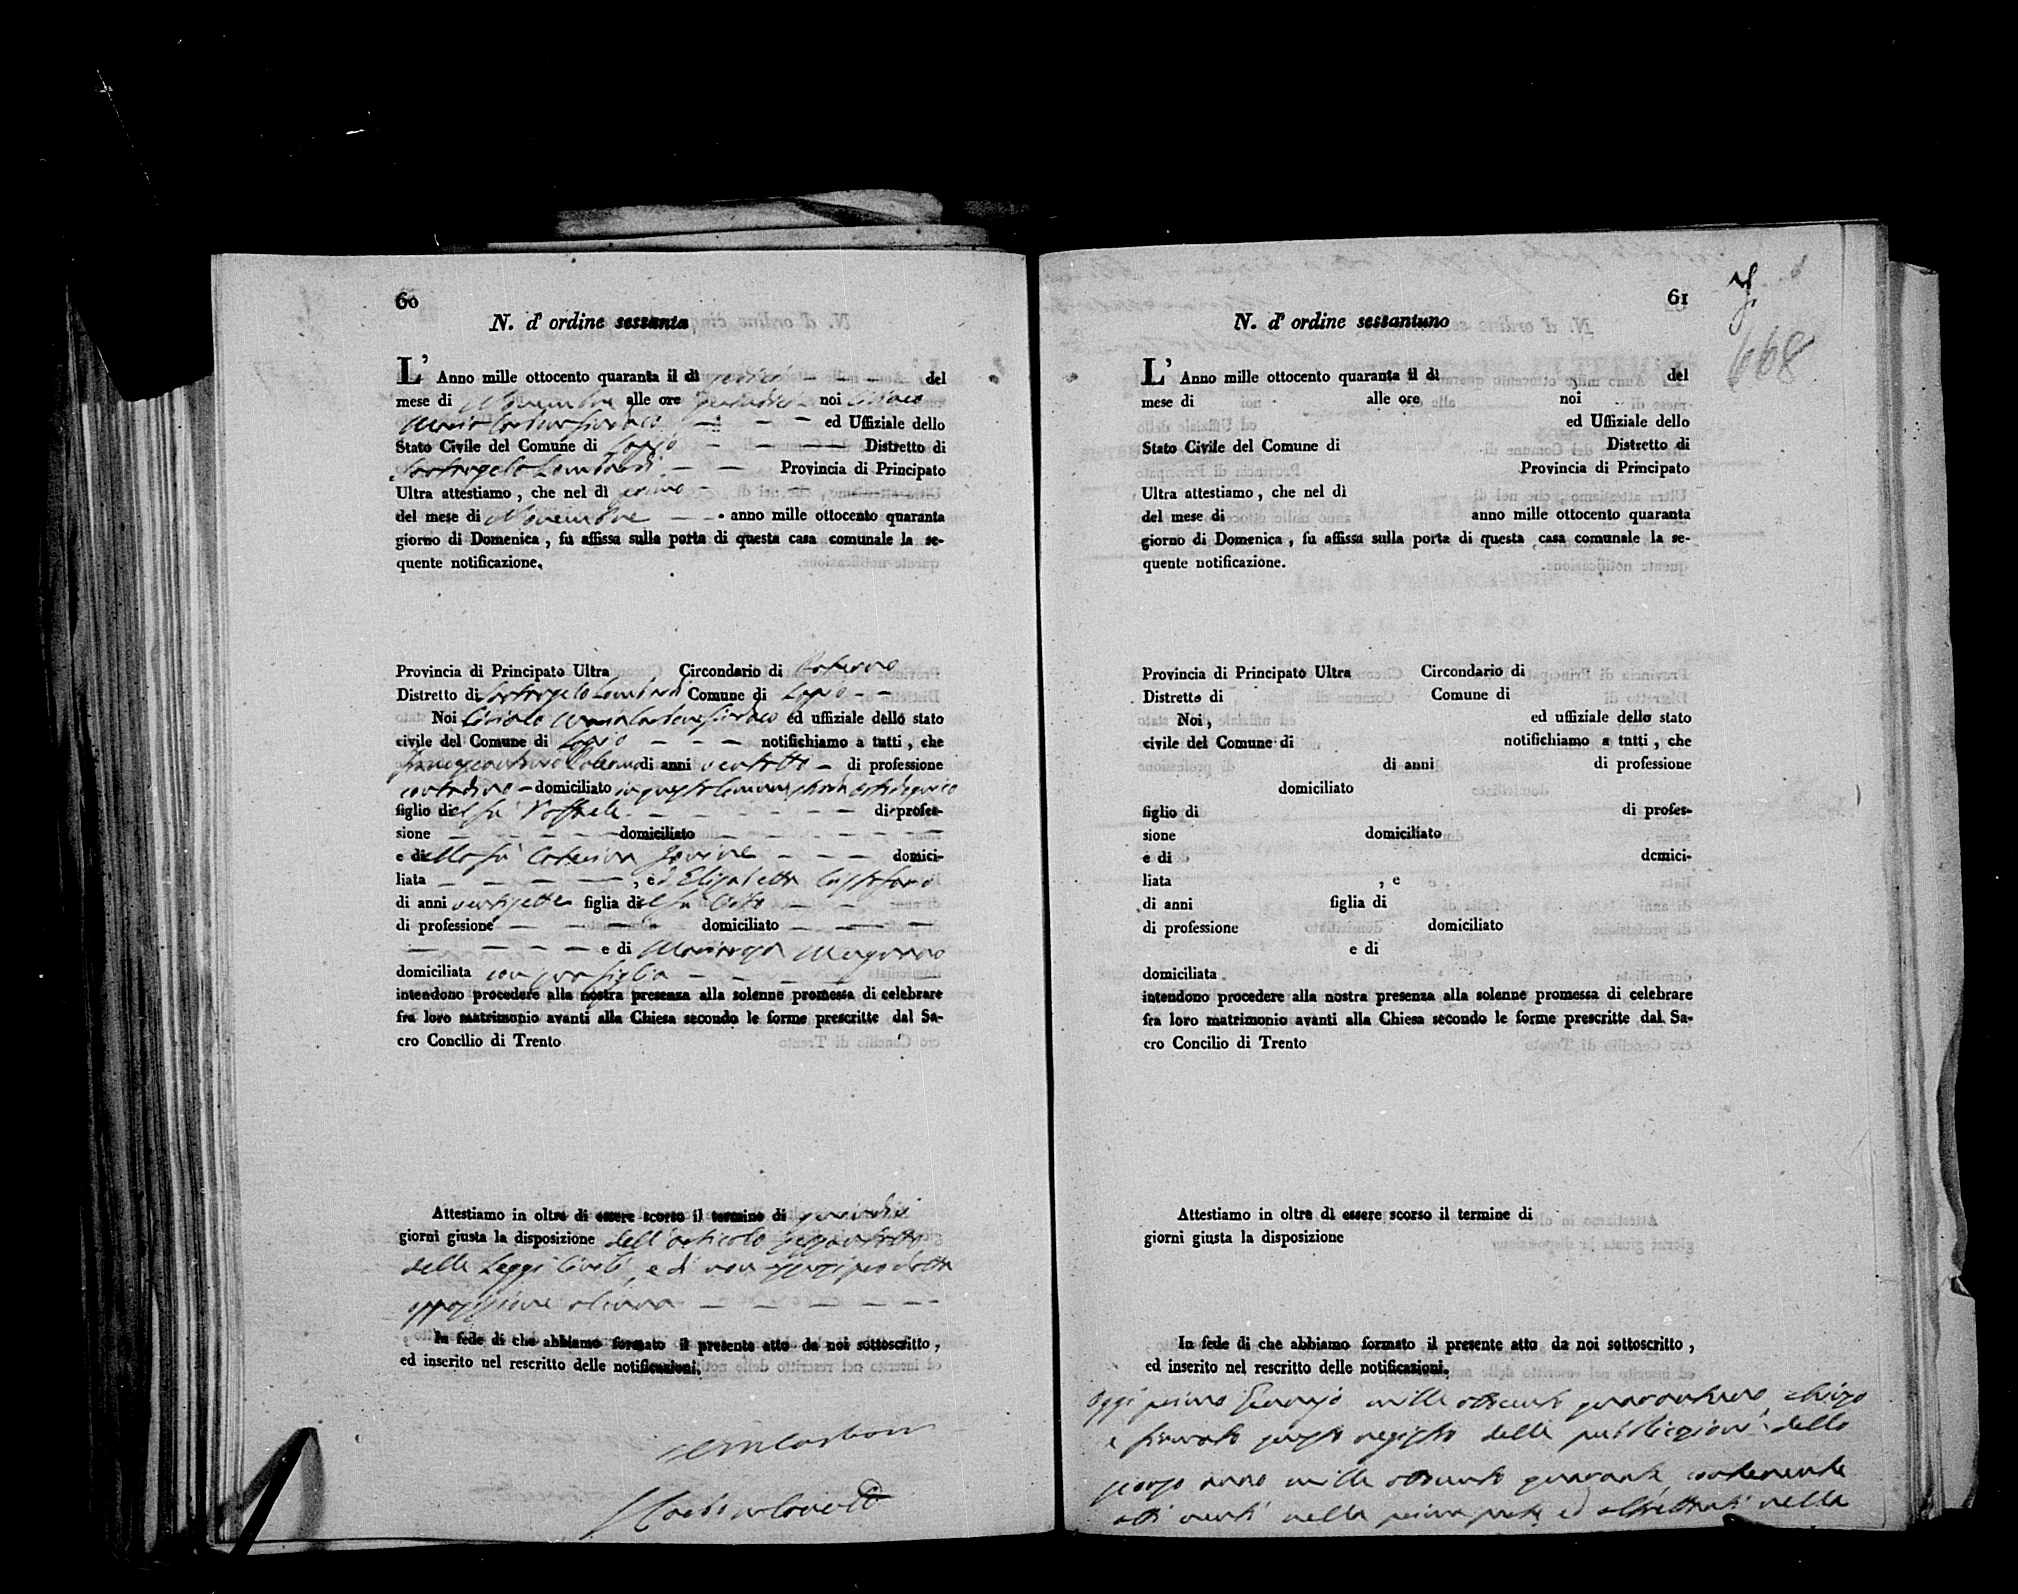 60
N. d' ordine sessanta
L' Anno mille ottocento quaranta il dì sedici del
mese di Novembre alle ore noi Ciriaco
Maria Carbone Sindaco ed Uffiziale dello
Stato Civile del Comune di Lapio Distretto di
Santangelo Lombardi Provincia di Principato
Ultra attestiamo, che nel dì primo
del mese di Novembre anno mille ottocento quaranta
giorno di Domenica, fu affissa sulla porta di questa casa comunale la se-
quente notificazione.
Provincia di Principato Ultra Circondario di Paterno
Distretto di Santangelo Lombardi Comune di Lapio
Noi Ciriaco Maria Carbone Sindaco ed uffiziale dello stato
civile del Comune di Lapio notifichiamo a tutti, che
di anni ventotto di professione
contadino domiciliato in questo Comune
figlio del fu Raffaele di profes-
sione domiciliato
e della fu Caterina Iovine domici-
liata , ed Elisabetta
di anni ventisette figlia del fu Vito
di professione domiciliato
e di Mariarosa
domiciliata con sua figlia
intendono procedere alla nostra presenza alla solenne promessa di celebrare
fra loro matrimonio avanti alla Chiesa secondo le forme prescritte dal Sa-
cro Concilio di Trento
Attestiamo in oltre di essere scorso il termine di quindici
giorni giusta la disposizione dell'articolo sessantotto
delle Leggi Civili, e di non essersi prodotta
opposizione alcuna
In fede di che abbiamo formato il presente atto da noi sottoscritto,
ed inserito nel rescritto delle notificazioni.
C M Carbone
61
668
N. d' ordine sessantuno
L' Anno mille ottocento quaranta il dì del
mese di alle ore noi
ed Uffiziale dello
Stato Civile del Comune di Distretto di
Provincia di Principato
Ultra attestiamo, che nel dì
del mese di anno mille ottocento quaranta
giorno di Domenica, fu affissa sulla porta di questa casa comunale la se-
quente notificazione.
Provincia di Principato Ultra Circondario di
Distretto di Comune di
Noi, ed uffiziale dello stato
civile del Comune di notifichiamo a tutti, che
di anni di professione
domiciliato
figlio di di profes-
sione domiciliato
e di domici-
liata , e
di anni figlia di
di professione domiciliato
e di
domiciliata
intendono procedere alla nostra presenza alla solenne promessa di celebrare
fra loro matrimonio avanti alla Chiesa secondo le forme prescritte dal Sa-
cro Concilio di Trento
Attestiamo in oltre di essere scorso il termine di
giorni giusta la disposizione
In fede di che abbiamo formato il presente atto da noi sottoscritto,
ed inserito nel rescritto delle notificazioni.
Oggi primo Gennajo mille ottocento quarantuno, chiuso
e firmato questo registro delle pubblicazioni dello
scorso anno mille ottocento quaranta, contenente
atti venti nella prima parte ed altrettanti nella